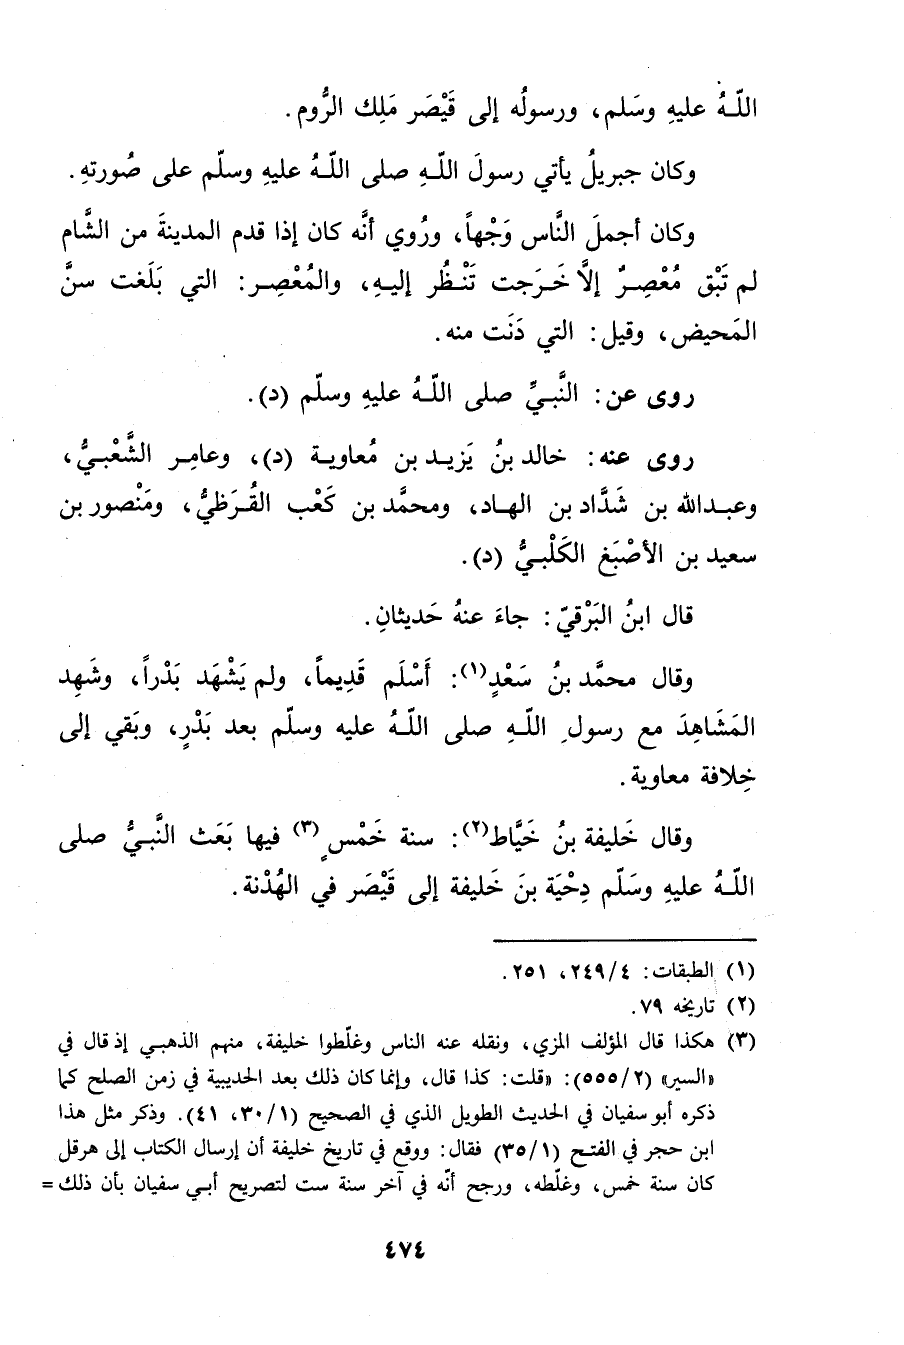 اللّـهُ عليهِ وسَلم، ورسولُه إلى قَيْصَر مَلِك الرُّوم.
وكان جبريلُ يأتي رسولَ اللّـهِ صلى اللّـهُ عليهِ وسلّم على صُورتهِ.
وكان أجملَ النَّاس وَجْهاً، ورُوي أنَّه كان إذا قدم المدينةَ من الشَّام
لم تَبْق مُعْصِـرٌ إلاَّ خَـرَجت تَنْـظُر إليـهِ، والمُعْصِـر: التي بَلَغت سنَّ
المَحيض، وقيل: التي دَنَت منه.
روى عن: النَّبـيِّ صلى اللّـهُ عليهِ وسلّم (د).
روى عنه: خالد بنُ يَزيـد بن مُعاويـة (د)، وعامِـر الشَّعْبـيُّ،
وعبـدالله بن شَدَّاد بن الهـاد، ومحمَّد بن كَعْب القُـرَظيُّ، ومَنْصور بن
سعيد بن الأصْبَغ الكَلْبـيُّ (د).
قال ابنُ البَرْقيّ: جاءَ عنهُ حَديثانِ.
وقال محمَّد بنُ سَعْدٍ(١): أَسْلَم قَدِيماً، ولم يَشْهَد بَدْراً، وشَهِد
المَشَاهِدَ مع رسولِ اللّـهِ صلى اللّـهُ عليه وسلّم بعد بَدْرٍ، وبَقي إلى
خِلافة معاوية.
وقال خَليفة بنُ خَيَّاط(٢): سنة خَمْسٍ(٣) فيها بَعَث النَّبـيُّ صلى
اللّـهُ عليهِ وسَلّم دِحْيَة بنَ خَليفة إلى قَيْصَر في الهُدْنة.
(١) الطبقات: ٢٤٩/٤، ٢٥١.
(٢) تاريخه ٧٩.
(٣) هكذا قال المؤلف المزي، ونقله عنه الناس وغلّطوا خليفة، منهم الذهبـي إذ قال في
«السير» (٥٥٥/٢): «قلت: كذا قال، وإنما كان ذلك بعد الحديبية في زمن الصلح كما
ذكره أبو سفيان في الحديث الطويل الذي في الصحيح (٣٠/١، ٤١). وذكر مثل هذا
ابن حجر في الفتـح (٣٥/١) فقال: ووقع في تاريخ خليفة أن إرسال الكتاب إلى هرقل
كان سنة خمس، وغلّطه، ورجح أنّه في آخر سنة ست لتصريح أبـي سفيان بأن ذلك =
٤٧٤